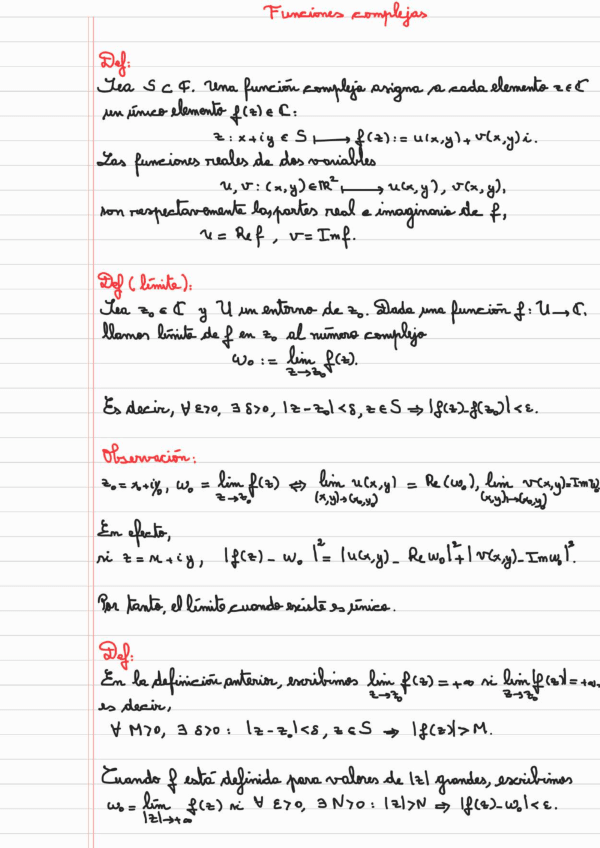 Funciones complejas
Def:
Sea S ⊂ ℂ. Una función compleja asigna a cada elemento z ∈ ℂ
un único elemento f(z) ∈ ℂ:
z = x+iy ∈ S ⟼ f(z) := u(x,y) + v(x,y)i.
Las funciones reales de dos variables
u, v : (x,y) ∈ ℝ² ⟼ u(x,y), v(x,y),
son respectavamente las partes real e imaginaria de f,
u = Re f , v = Im f.
Def (límite):
Sea z₀ ∈ ℂ y U un entorno de z₀. Dada una función f: U → ℂ,
llamos límite de f en z₀ al número complejo
ω₀ := lim_{z→z₀} f(z).
Es decir, ∀ ε>0, ∃ δ>0, |z-z₀|<δ, z∈S ⇒ |f(z)-f(z₀)|<ε.
Observación:
z₀ = x₀+iy₀, ω₀ = lim_{z→z₀} f(z) ⇔ lim_{(x,y)→(x₀,y₀)} u(x,y) = Re(ω₀), lim_{(x,y)→(x₀,y₀)} v(x,y) = Im ω₀
En efecto,
si z = x+iy, |f(z) - ω₀|² = |u(x,y) - Re ω₀|² + |v(x,y) - Im ω₀|².
Por tanto, el límite cuando existe es único.
Def:
En la definición anterior, escribimos lim_{z→z₀} f(z) = +∞ si lim_{z→z₀} |f(z)| = +∞,
es decir,
∀ M>0, ∃ δ>0 : |z-z₀|<δ, z∈S ⇒ |f(z)|>M.
Cuando f está definida para valores de |z| grandes, escribimos
ω₀ = lim_{|z|→+∞} f(z) si ∀ ε>0, ∃ N>0 : |z|>N ⇒ |f(z)-ω₀|<ε.